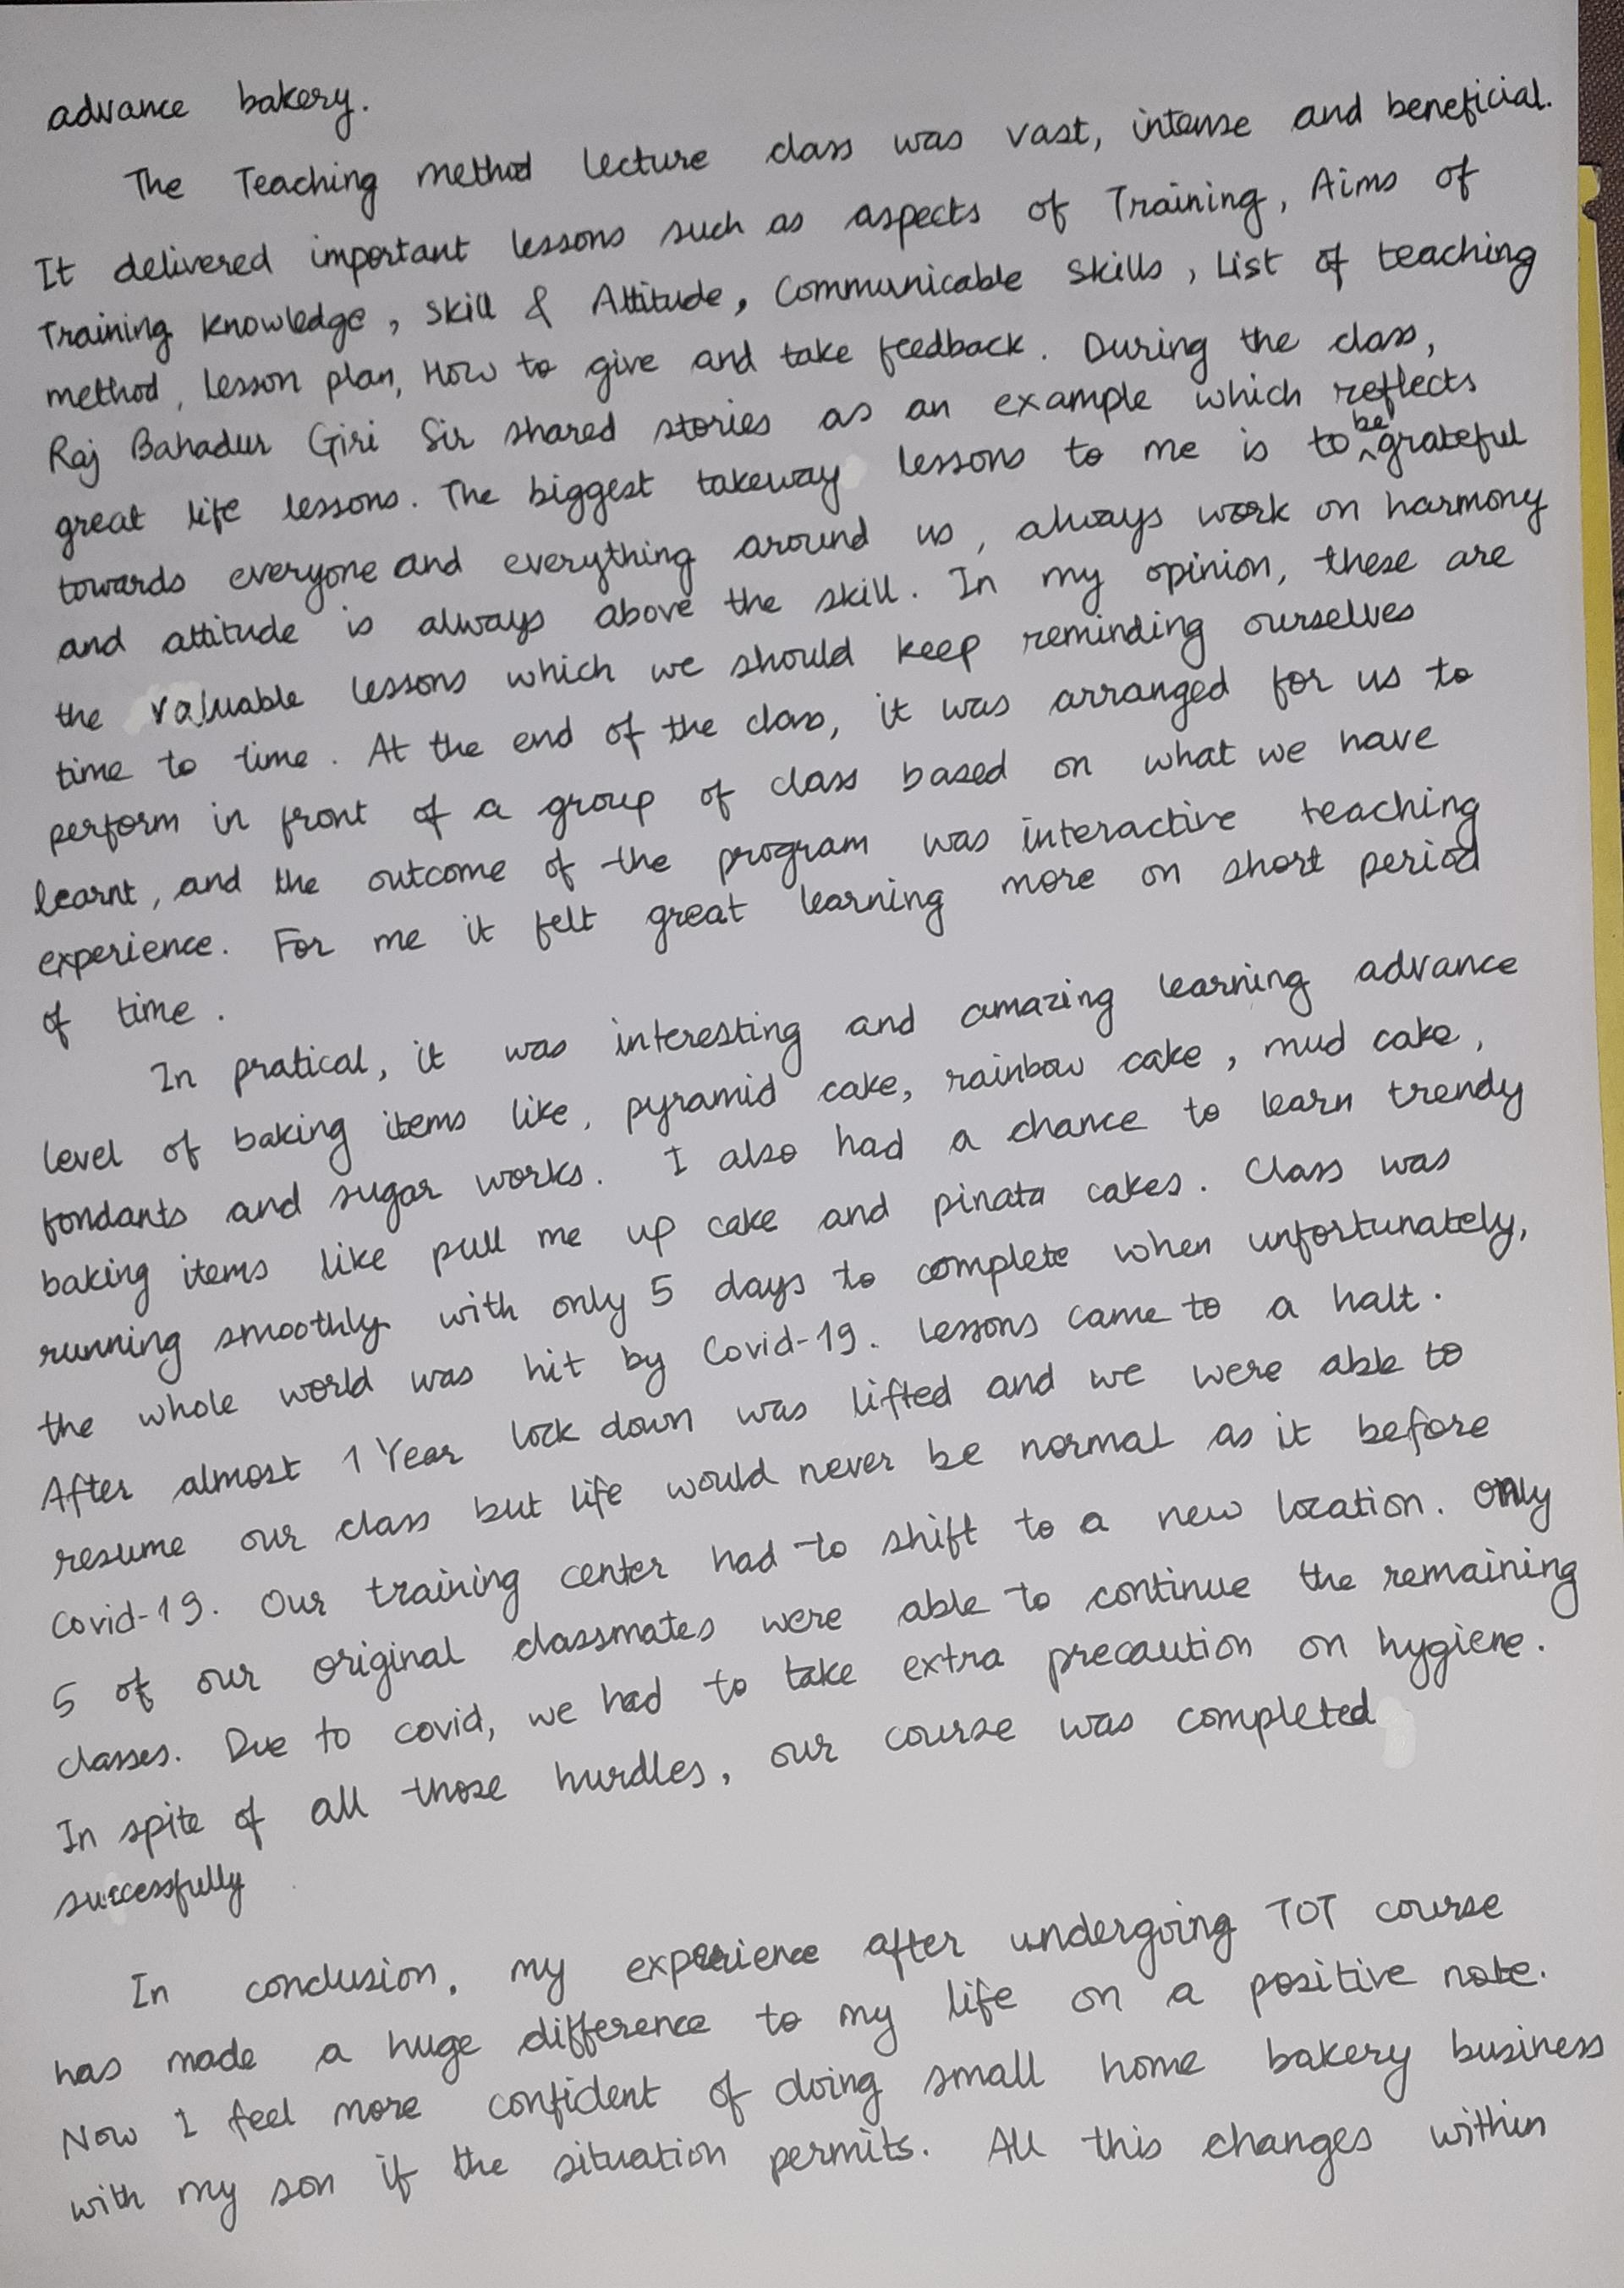 advance bakery.
The Teaching method lecture class was vast, intense and beneficial.
It delivered important lessons such as aspects of Training, Aims of
Training knowledge, skill & Attitude, Communicable skills, List of teaching
method, lesson plan, How to give and take feedback. During the class,
Raj Bahadur Giri Sir shared stories as an example which reflects
great life lessons. The biggest takeway lessons to me is to be grateful
towards everyone and everything around us, always work on harmony
and attitude is always above the skill. In my opinion, these are
the valuable lessons which we should keep reminding ourselves
time to time. At the end of the class, it was arranged for us to
perform in front of a group of class based on what we have
learnt, and the outcome of the program was interactive teaching
experience. For me it felt great learning more on short period
of time.
In pratical, it was interesting and amazing learning advance
level of baking items like, pyramid cake, rainbow cake, mud cake,
fondants and sugar works. I also had a chance to learn trendy
baking items like pull me up cake and pinata cakes. Class was
running smoothly with only 5 days to complete when unfortunately,
the whole world was hit by Covid-19. Lessons came to a halt.
After almost 1 Year lock down was lifted and we were able to
resume our class but life would never be normal as it before
Covid-19. Our training center had to shift to a new location. Only
5 of our original classmates were able to continue the remaining
classes. Due to covid, we had to take extra precaution on hygiene.
In spite of all those hurdles, our course was completed
successfully
In conclusion, my experience after undergoing TOT course
has made a huge difference to my life on a positive note.
Now I feel more confident of doing small home bakery business
with my son if the situation permits. All this changes within